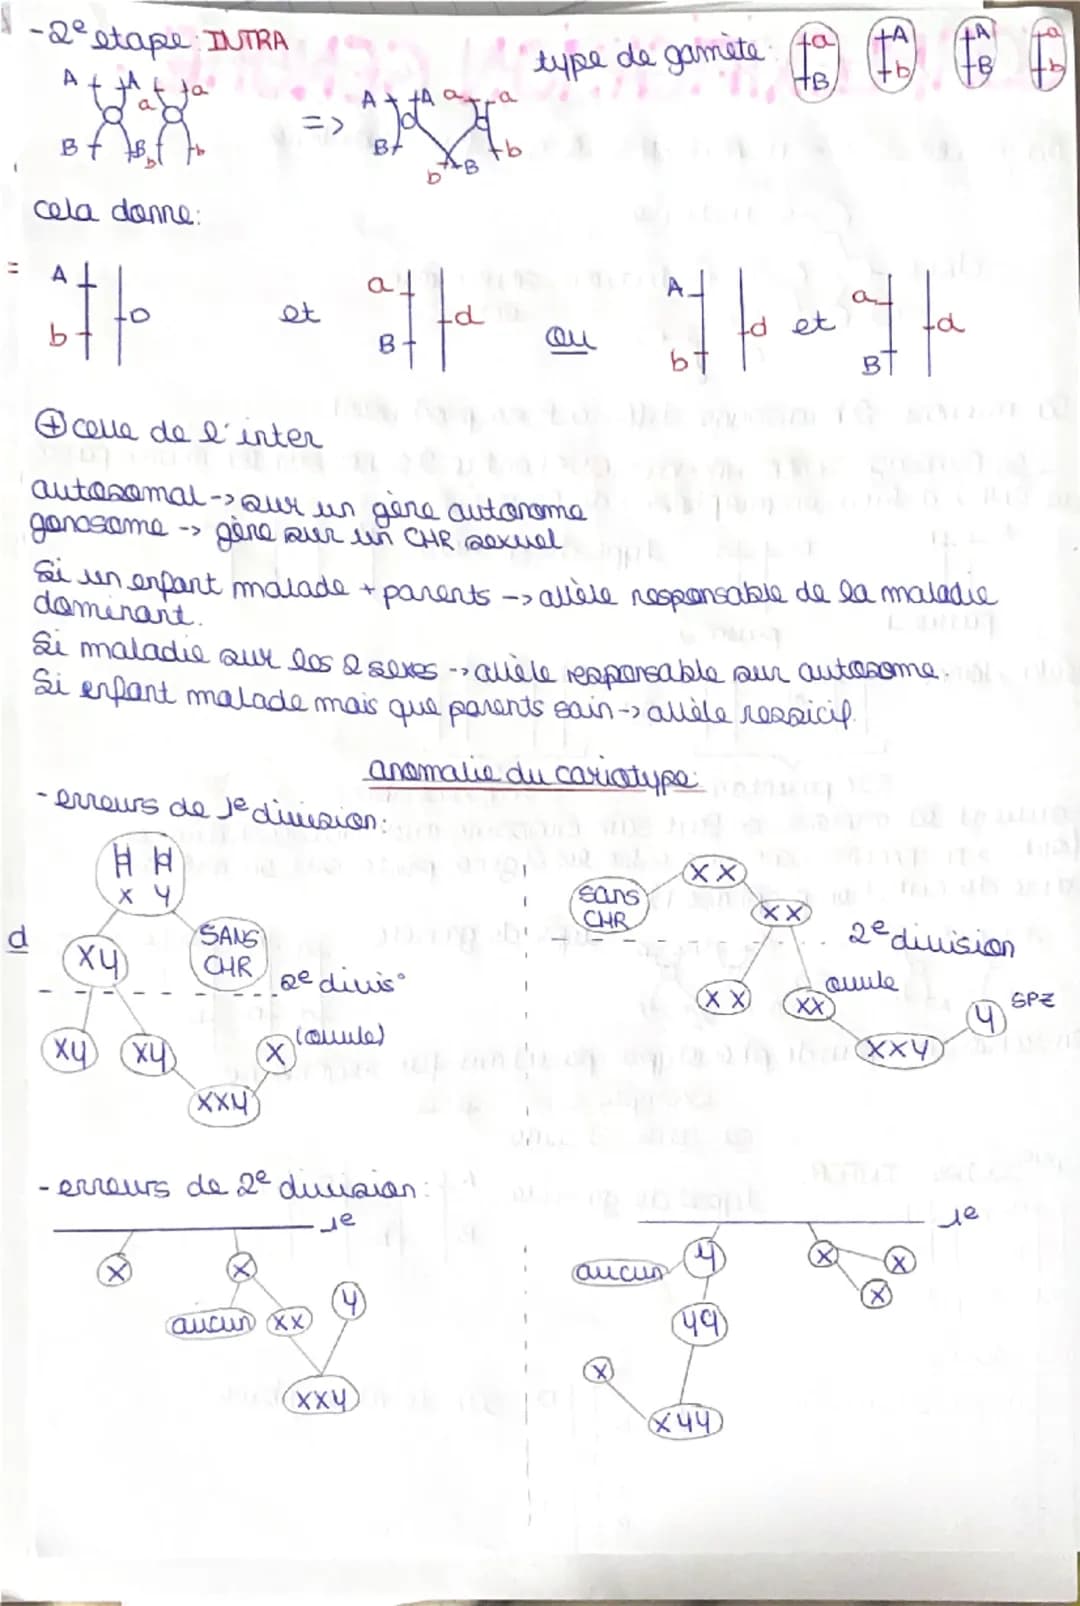 -2e etape: INTRA
type de gamète: a B A b A B a b
A A a a B B b b => A A a a B b B b
cela donne:
= A b D et a B d ou A b d et a B d
⊕ celle de l'inter
autosomal -> sur un gène autonome
gonosome -> gène sur un CHR sexuel
Si un enfant malade + parents -> allèle responsable de la maladie
dominant.
Si maladie sur les 2 sexes -> allèle responsable sur autosome.
Si enfant malade mais que parents sain -> allèle ressicif.
anomalie du cariotype:
- erreurs de 1e division:
X Y
XY
SANS CHR
2e divis°
XY XY X (ovule)
XXY
d
XX
sans CHR
XX
2e division
XX XX ovule
Y SPZ
XXY
- erreurs de 2e division:
1e
X X
aucun XX Y
XXY
1e
aucun Y X X
X
YY
X
XYY